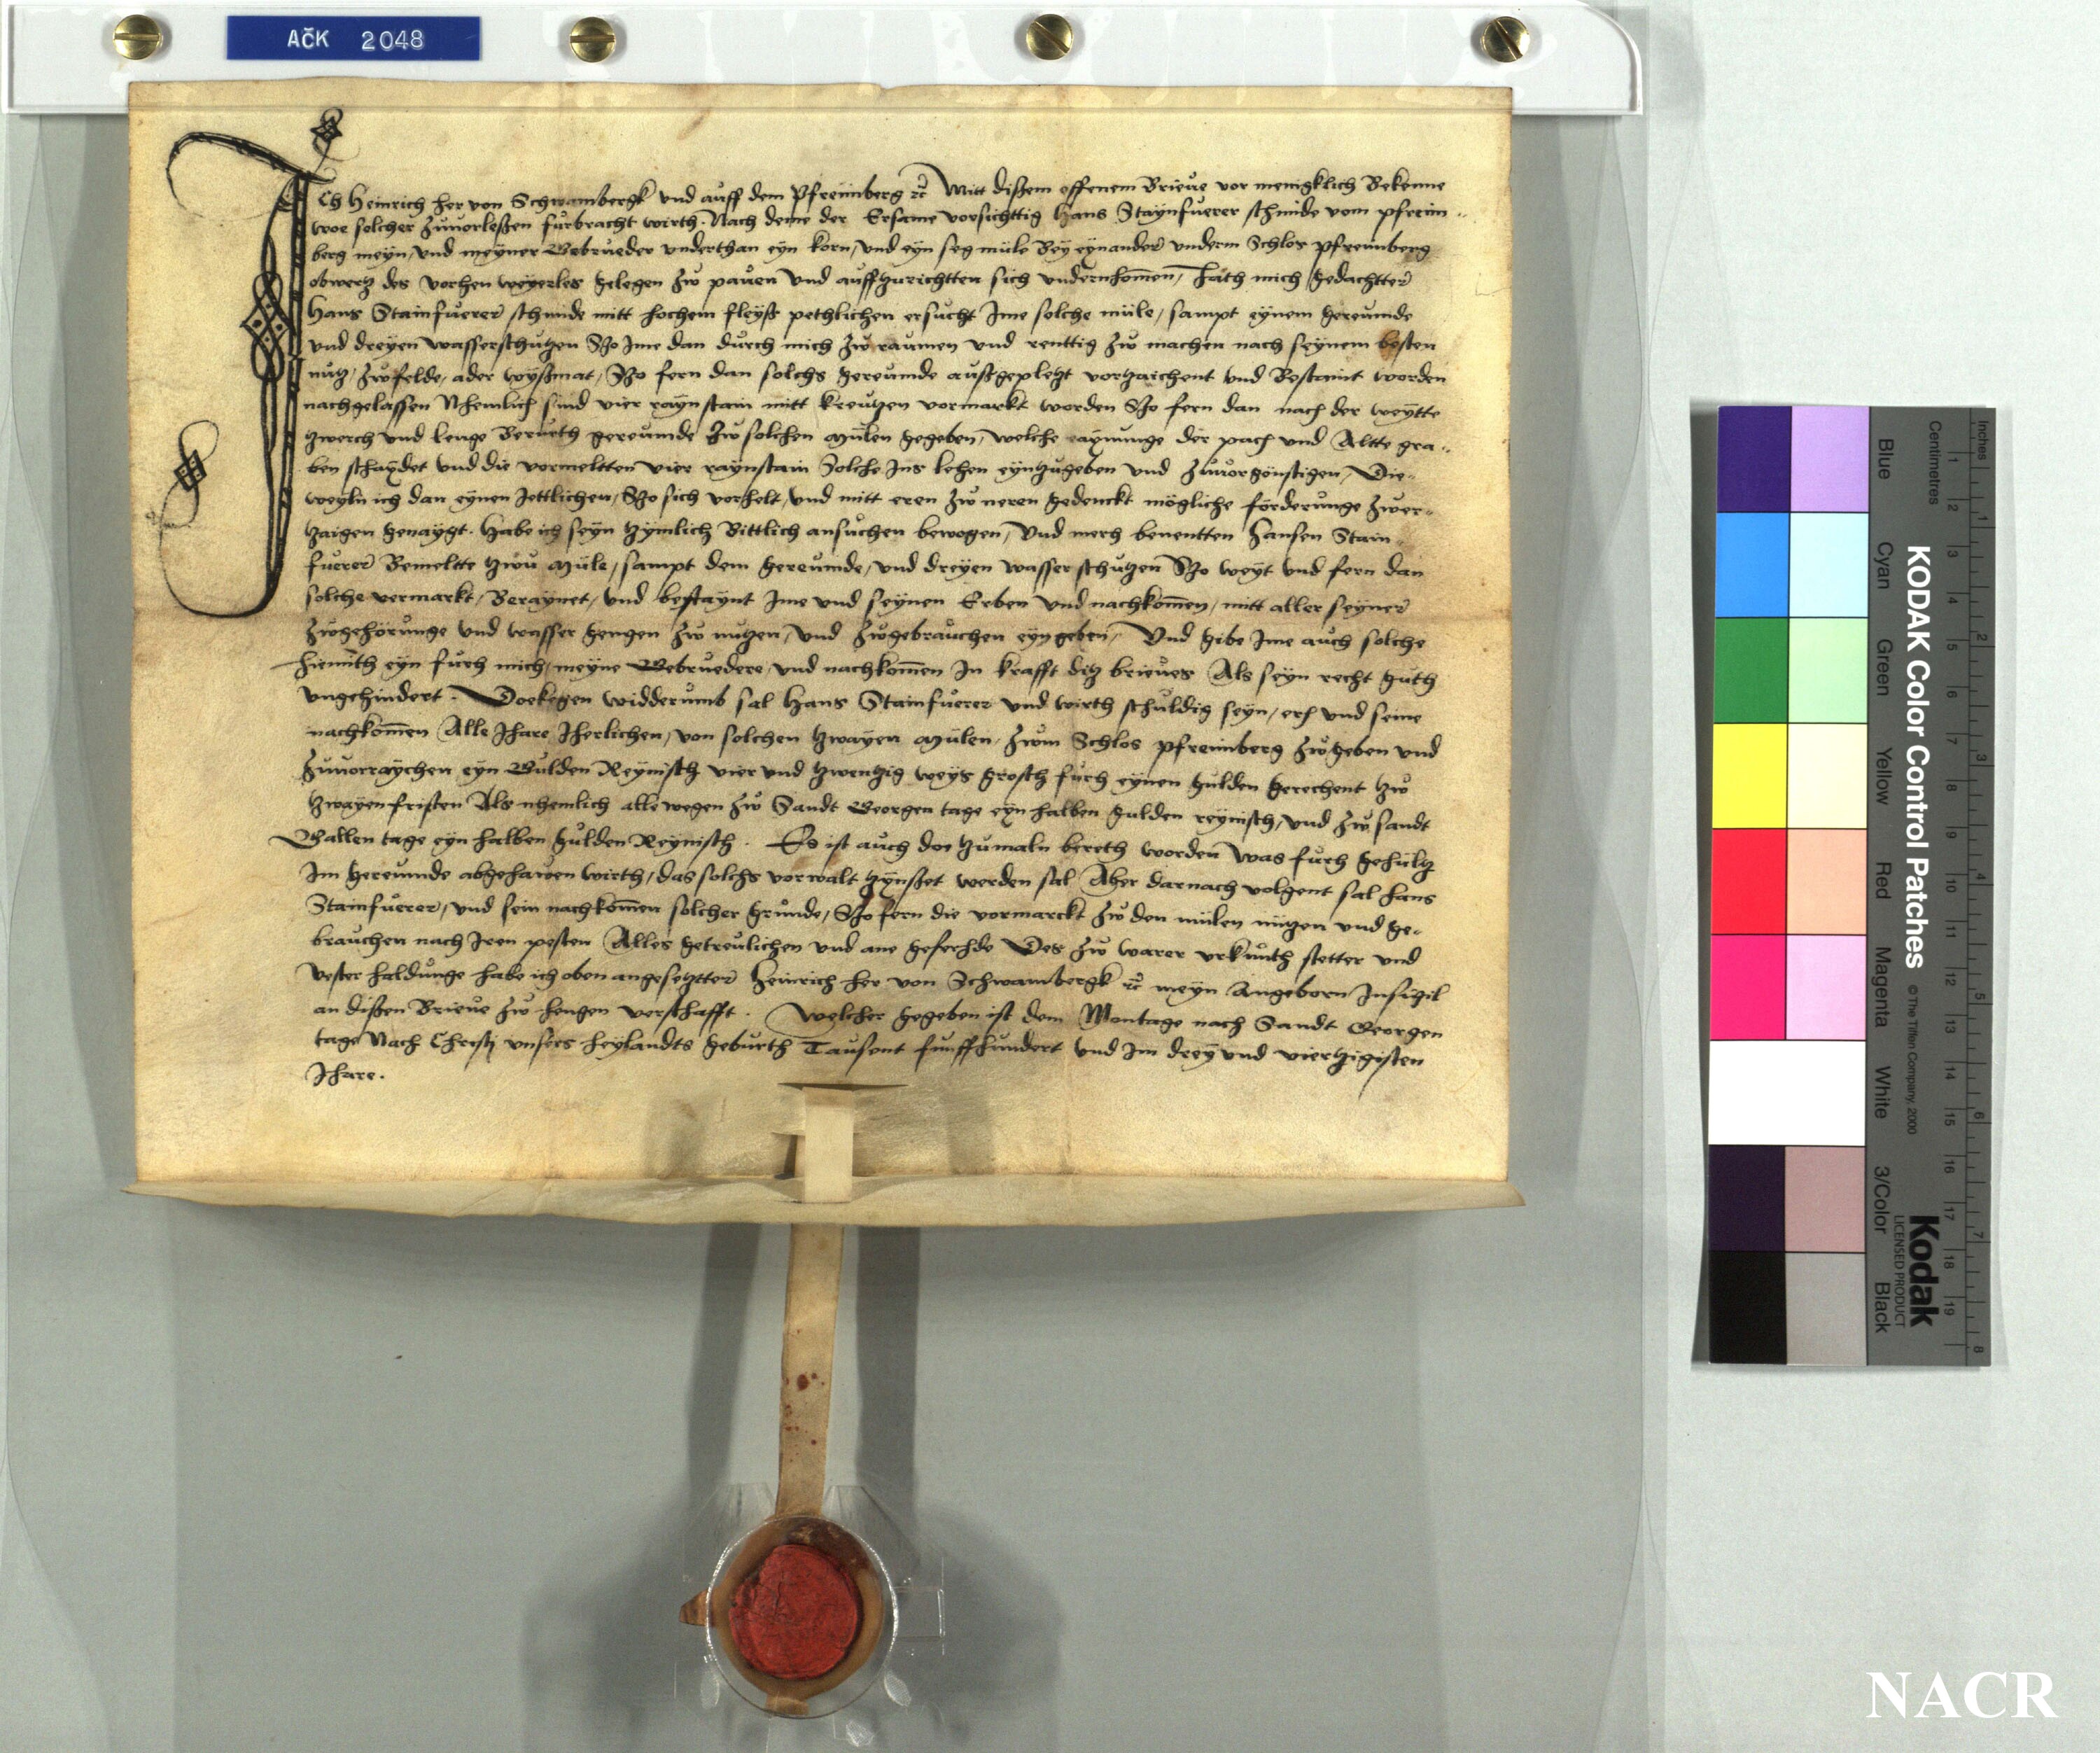 AČK 2048
Ich Heinrich her von Schwambergk vnd auff dem Pfreimberg ꝛc Mitt dißem offenem Brieue vor menigklich Bekenne
woe solcher zuuorleßen furbracht wirth. Nach deme der Ersame vorsichttig Hans Staynfuerer schmide vom pfreim-
berg meyn, vnd meyner Gebrueder vnderthan eyn korn, vnd eyn seg müle Bey eynander vnderm Schlos pfreimberg
obwertz des vorhen weyerles gelegen zw pauen vnd auffzurichtten sich vndernhomen, hath mich gedachtter
Hans Stainfuerer schmide mitt hochem fleyß pethlichen ersucht Jme solche müle, sampt eynem gereumde
vnd dreyen wasserschutzen Szo Jme dan durch mich zw raumen vnd renttig zw machen nach seynem besten
nutz, zw felde, ader wyßmat, Szo fern dan solchs gereumde außgepletzt vorzaichent vnd Bestaint worden
nachgelassen Nhemlich sind vier rayn stain mitt kreutzen vormarkt worden Szo fern dan nach der weytte
zwerch vnd lenge Berurth gereumde zw solchen mülen gegeben, welche raynunge der pach vnd Altte gra-
ben schaydet vnd die vormeltten vier raynstain Solche Jns lehen eyntzugeben vnd zuuorgönstigen, Die-
weyln ich dan eynen Jettlichen, Szo sich vorhelt, vnd mitt eren zw neren gedenckt mögliche förderunge zwer-
zaigen genaygt. Habe ich seyn zymlich Bittlich ansuchen bewogen, Vnd merh benentten Hansen Stain-
fuerer Bemeltte zwu müle, sampt dem gereumde, vnd dreyen wasser schutzen Szo weyt vnd fern dan
solche vermarkt, Beraynet, vnd bestaynt Jme vnd seynen Erben vnd nachkomen, mitt aller seyner
zwgehörunge vnd wasser gengen zw nutzen, vnd zwgebrauchen eyn geben, Vnd gibe Jme auch solche
hiemith eyn furh mich, meyne Gebruedere, vnd nachkomen Jn krafft ditz brieues Als seyn recht guth
vngehindert. Doekegen widderumb sal Hans Stainfuerer vnd wirth schuldig seyn, erh vnd seine
nachkomen Alle Jhare Jherlichen, von solchen zwayen mülen, zwm Schlos pfreimberg zwgeben vnd
zuuorraychen eyn Gulden Reynisch vier vnd zwentzig weys grosch furh eynen gulden gerechent zw
zwayen fristen Als nhemlich alle wegen zw Sandt Georgen tage eyn halben gulden reynisch, vnd zw sandt
Gallen tage eyn halben gulden Reynisch. Es ist auch do zumaln bereth worden Was furh gehultz
Jm gereumde abgehawen wirth, das solchs vorwalt zynßet werden sal Aber darnach volgent sal hans
Stainfuerer, vnd sein nachkomen solcher grunde, Szo fern die vormarckt zw den mülen nützen vnd ge-
brauchen nach Jren pesten Alles getreulichen vnd ane geferhde Des zw warer vrkunth stetter vnd
vester haldunge habe ich oben angesetztter Heinrich her von Schwambergk ꝛc meyn Angeborn Jnsigil
an dißen Brieue zw hengen verschafft. Welcher gegeben ist dem Montage nach Sandt Georgen
tage Nach Christj vnsers heylandts geburth Tausent funffhundert vnd Jm drey vnd viertzigisten
Jhare.
KODAK Color Control Patches © The Tiffen Company, 2000 Kodak
LICENSED PRODUCT
Inches
Centimetres
Blue Cyan Green Yellow Red Magenta White 3/Color Black
1 2 3 4 5 6 7 8 9 10 11 12 13 14 15 16 17 18 19
1 2 3 4 5 6 7 8
NACR